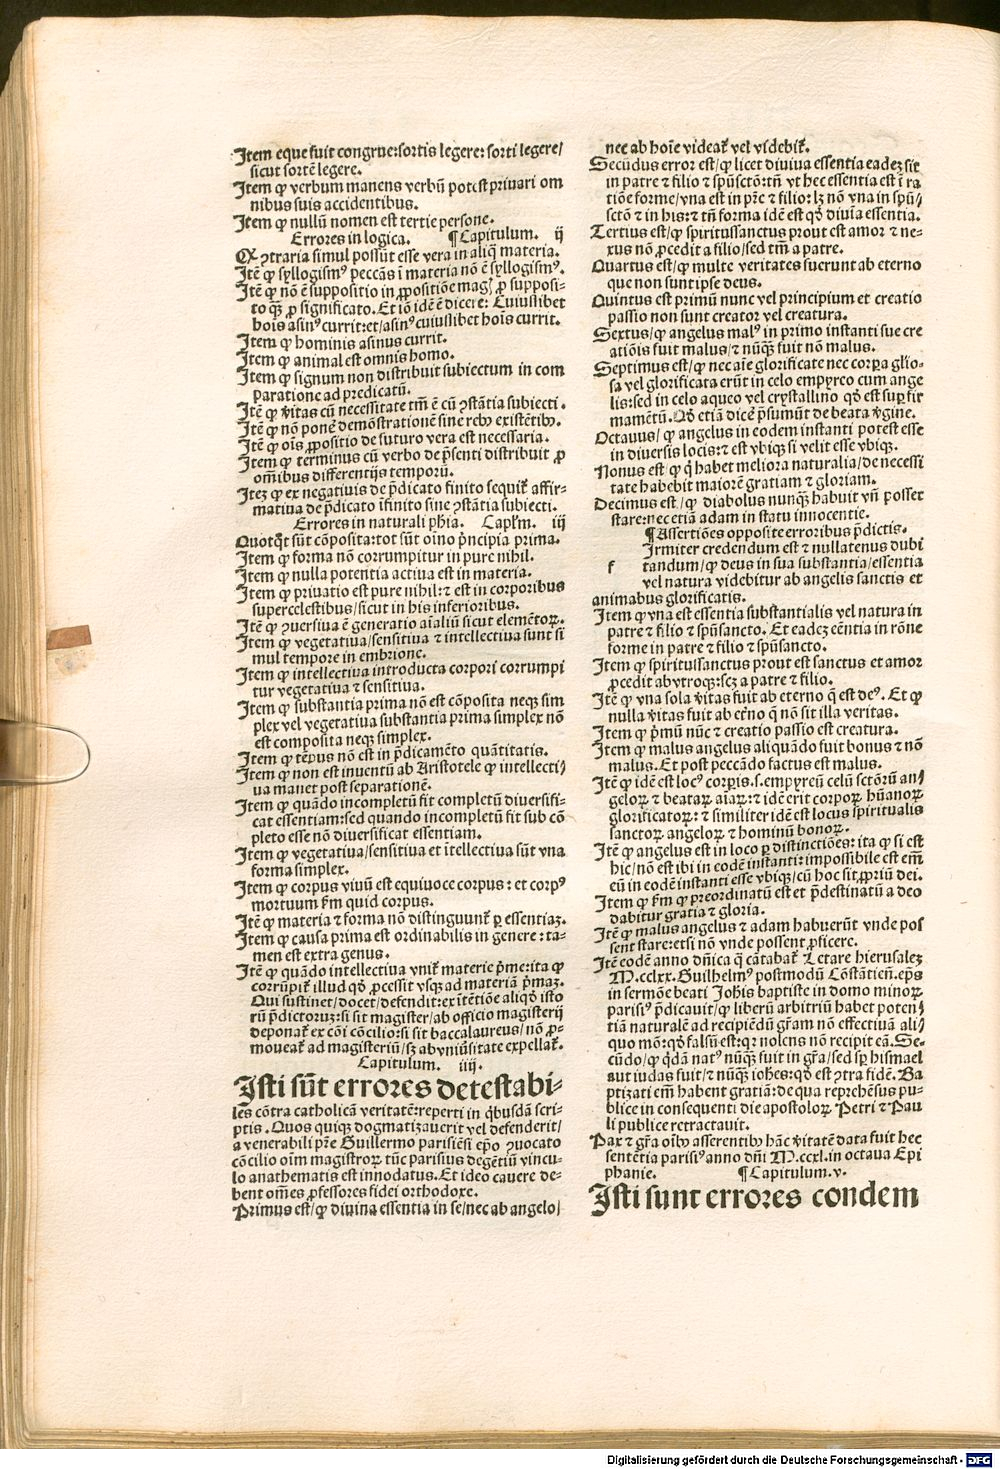 Item eque fuit congrue:sortis legere: sorti legere/
sicut sortē legere.
Item ꝙ verbum manens verbū potest priuari om
nibus suis accidentibus.
Item ꝙ nullū nomen est tertie persone.
Errores in logica. ¶Capitulum. ij
Q ꝯtraria simul possūt esse vera in aliq̄ materia.
Itē ꝙ syllogismꝰ peccās ī materia nō ē syllogismꝰ.
Itē ꝙ nō ē suppositio in ꝓpositiōe mag ꝓ supposi-
to qꝫ ꝓ significato. Et iō idē ē dicere: Cuiuslibet
hoīs asinꝰ currit:et/asinꝰ cuiuslibet hoīs currit.
Item ꝙ hominis asinus currit.
Item ꝙ animal est omnis homo.
Item ꝙ signum non distribuit subiectum in com
paratione ad predicatū.
Itē ꝙ v̄itas cū necessitate tm̄ ē cū ꝯstātia subiecti.
Itē ꝙ nō ponē demōstrationē sine rebꝰ existētibꝰ.
Itē ꝙ oīs ꝓpositio de futuro vera est necessaria.
Item ꝙ terminus cū verbo de p̄senti distribuit ꝓ
oībus differentijs temporū.
Iteꝫ ꝙ ex negatiuis de p̄dicato finito sequit̄ affir-
matiua de p̄dicato īfinito sine ꝯstātia subiecti.
Errores in naturali ph̄ia. Capl̄m. iij
Quotq̄t sūt cōposita:tot sūt oīno p̄ncipia prima.
Item ꝙ forma nō corrumpitur in pure nihil.
Item ꝙ nulla potentia actiua est in materia.
Item ꝙ priuatio est pure nihil:⁊ est in corporibus
supercelestibus/sicut in his inferioribus.
Itē ꝙ ꝯuersiua ē generatio aīaliū sicut elemētoꝝ.
Item ꝙ vegetatiua/sensitiua ⁊ intellectiua sunt si
mul tempore in embrione.
Item ꝙ intellectiua introducta corpori corrumpi
tur vegetatiua ⁊ sensitiua.
Item ꝙ substantia prima nō est cōposita neqꝫ sim
plex vel vegetatiua substantia prima simplex nō
est composita neqꝫ simplex.
Item ꝙ tēpus nō est in p̄dicamēto quātitatis.
Item ꝙ non est inuentū ab Aristotele ꝙ intellecti/
ua manet post separationē.
Item ꝙ quādo incompletū fit completū diuersifi-
cat essentiam:sed quando incompletū fit sub cō
pleto esse nō diuersificat essentiam.
Item ꝙ vegetatiua/sensitiua et ītellectiua sūt vna
forma simplex.
Item ꝙ corpus viuū est equiuoce corpus: et corpꝰ
mortuum s̄m quid corpus.
Itē ꝙ materia ⁊ forma nō distinguunt̄ ꝑ essentiaꝫ.
Item ꝙ causa prima est ordinabilis in genere: ta-
men est extra genus.
Itē ꝙ quādo intellectiua vnit̄ materie p̄me:ita ꝙ
corrūpit̄ illud qd̄ ꝓcessit vsqꝫ ad materiā p̄maꝫ.
Qui sustinet/docet/defendit:ex ītētiōe aliqd̄ isto
rū p̄dictoruꝫ:si sit magister/ab officio magisterij
deponat̄ ex cōi cōcilio:si sit baccalaureus/nō ꝓ-
moueat̄ ad magisteriū/sꝫ ab vniūsitate expellat̄.
Capitulum. iiij.
Isti sūt errores detestabi-
les cōtra catholicā veritatē:reperti in q̄busdā scri-
ptis. Quos quiqꝫ dogmatizauerit vel defenderit/
a venerabili pr̄e Guillermo parisiēsi ep̄o ꝯuocato
cōcilio oīm magistroꝝ tūc parisius degētiū vincu-
lo anathematis est innodatus. Et ideo cauere de-
bent om̄es ꝓfessores fidei orthodoxe.
Primus est/ꝙ diuina essentia in se/nec ab angelo/
nec ab hoīe videat̄ vel videbit̄.
Secūdus error est/ꝙ licet diuiua essentia eadeꝫ sit
in patre ⁊ filio ⁊ spūsctō:tn̄ vt hec essentia est ī ra
tiōe forme/vna est in pr̄e ⁊ filio:lꝫ nō vna in spū/
sctō ⁊ in his:⁊ tn̄ forma idē est qd̄ diuīa essentia.
Tertius est/ꝙ spiritussanctus prout est amor ⁊ ne-
xus nō ꝓcedit a filio/sed tm̄ a patre.
Quartus est/ꝙ multe veritates fuerunt ab eterno
que non sunt ipse deus.
Quintus est primū nunc vel principium et creatio
passio non sunt creator vel creatura.
Sextus/ꝙ angelus malꝰ in primo instanti sue cre
atiōis fuit malus/⁊ nūqꝫ fuit nō malus.
Septimus est/ꝙ nec aīe glorificate nec corꝑa glīo-
sa vel glorificata erūt in celo empyreo cum ange
lis:sed in celo aqueo vel crystallino qd̄ est suꝑ fir
mamētū. Qd̄ etiā dicē p̄sumūt de beata v̄gine.
Octauus/ ꝙ angelus in eodem instanti potest esse
in diuersis locis:⁊ est vbiqꝫ si velit esse vbiqꝫ.
Nonus est/ꝙ q̄ habet meliora naturalia/de necessi
tate habebit maiorē gratiam ⁊ gloriam.
Decimus est/ꝙ diabolus nunqꝫ habuit vn̄ posset
stare:nec etiā adam in statu innocentie.
¶Assertiōes opposite erroribus p̄dictis.
Irmiter credendum est ⁊ nullatenus dubi
f tandum/ꝙ deus in sua substantia/essentia
vel natura videbitur ab angelis sanctis et
animabus glorificatis.
Item ꝙ vna est essentia substantialis vel natura in
patre ⁊ filio ⁊ spūsancto. Et eadeꝫ eēntia in rōne
forme in patre ⁊ filio ⁊ spūsancto.
Item ꝙ spiritussanctus prout est sanctus et amor
ꝓcedit ab vtroqꝫ:scꝫ a patre ⁊ filio.
Itē ꝙ vna sola v̄itas fuit ab eterno q̄ est deꝰ. Et ꝙ
nulla v̄itas fuit ab et̄no q̄ nō sit illa veritas.
Item ꝙ p̄mū nūc ⁊ creatio passio est creatura.
Item ꝙ malus angelus aliquādo fuit bonus ⁊ nō
malus. Et post peccādo factus est malus.
Itē ꝙ idē est locꝰ corꝑis.s.empyreū celū sctōrū an/
geloꝝ ⁊ beataꝝ aīaꝝ:⁊ idē erit corpoꝝ hūanoꝝ
glorificatoꝝ: ⁊ similiter idē est locus spiritualis
sanctoꝝ angeloꝝ ⁊ hominū bonoꝝ.
Itē ꝙ angelus est in loco ꝑ distinctiōes: ita ꝙ si est
hic/nō est ibi in eodē instanti: impossibile est em̄
eū in eodē instanti esse vbiqꝫ/cū hoc sit ꝓpriū dei.
Item ꝙ s̄m ꝙ preordinatū est et p̄destinatū a deo
dabitur gratia ⁊ gloria.
Itē ꝙ malus angelus ⁊ adam habuerūt vnde pos
sent stare:etsi nō vnde possent ꝓficere.
Itē eodē anno dn̄ica q̄ cātabat̄ Letare hierusaleꝫ
M.cclxx. Guilhelmꝰ postmodū Cōstātien̄.ep̄s
in sermōe beati Joh̄is baptiste in domo minoꝝ
parisiꝰ p̄dicauit/ꝙ liberū arbitriū habet poten/
tiā naturalē ad recipiēdū gr̄am nō effectiuā ali/
quo mō:qd̄ falsū est:qꝛ nolens nō recipit eā. Se-
cūdo/ꝙ q̄dā natꝰ nūqꝫ fuit in gr̄a/sed sꝑ hismael
aut iudas fuit/⁊ nūqꝫ ioh̄es:qd̄ est ꝯtra fidē. Ba
ptizati em̄ habent gratiā: de qua reprehēsus pu-
blice in consequenti die apostoloꝝ Petri ⁊ Pau
li publice retractauit.
Pax ⁊ gr̄a oībꝰ asserentibꝰ hāc v̄itatē data fuit hec
sentētia parisiꝰ anno dn̄i M.ccxl. in octaua Epi
phanie. ¶Capitulum. v.
Isti sunt errores condem
Digitalisierung gefördert durch die Deutsche Forschungsgemeinschaft - DFG